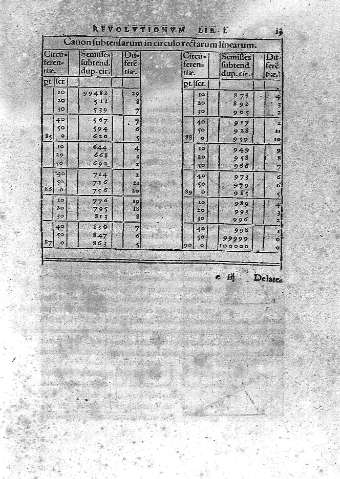 REVOLUTIONUM LIB. I.
Canon subtensarum in circulo rectarum linearum.
Circu- Semisses Dif- Circu- Semisses Dif-
feren- subtend. ferē feren- subtend. ferē
tiæ. dup. cir. tiæ. tiæ. dup. cir. tiæ.
pt. scr. pt. scr.
10 99482 29 10 878 4
20 511 8 20 892 3
30 539 7 30 905 2
40 567 40 917
50 594 6 50 928 11
85 0 620 5 88 0 939 10
10 644 4 10 949 9
20 668 20 958 8
30 692 2 30 966 7
40 714 2 40 973 6
50 736 21 50 979 6
86 0 756 20 89 0 985
10 776 19 10 989 4
20 795 18 20 993 3
30 813 8 30 996 2
40 830 7 40 998
50 847 6 50 99999
87 0 863 5 90 0 100000 0
e iij Delate.